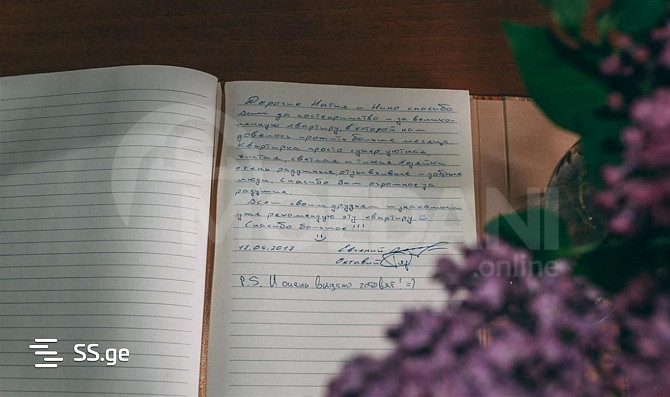 Дорогие Натия и Нино спасибо
Вам за гостеприимство и за велико-
лепную квартиру в которой нам
довелось прожить больше месяца
Квартирка просто супер, уютная
чистая, светлая и тихая. Хозяйки
очень радушные, отзывчивые и добрые
люди, спасибо Вам огромное за
радушие.
Всем своим друзьям и знакомым
уже рекомендую эту квартиру
Спасибо большое!!!
Евгений
Октавий
P.S. И очень вкусно готовят! =)
online
SS.ge